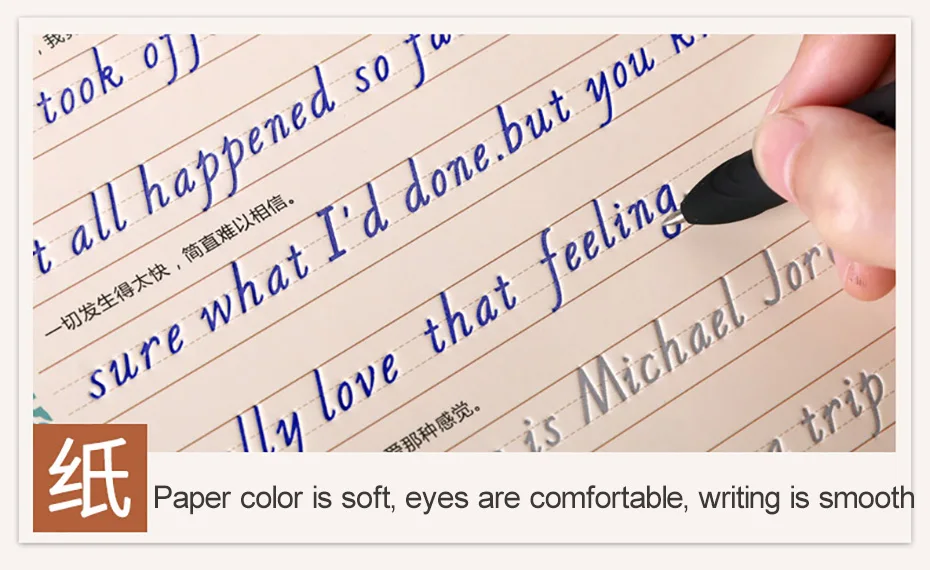 took off
all happened so
一切发生得太快，简直难以相信。
sure what I'd done.but you
love that feeling
爱那种感觉。
is Michael
trip
纸
Paper color is soft, eyes are comfortable, writing is smooth